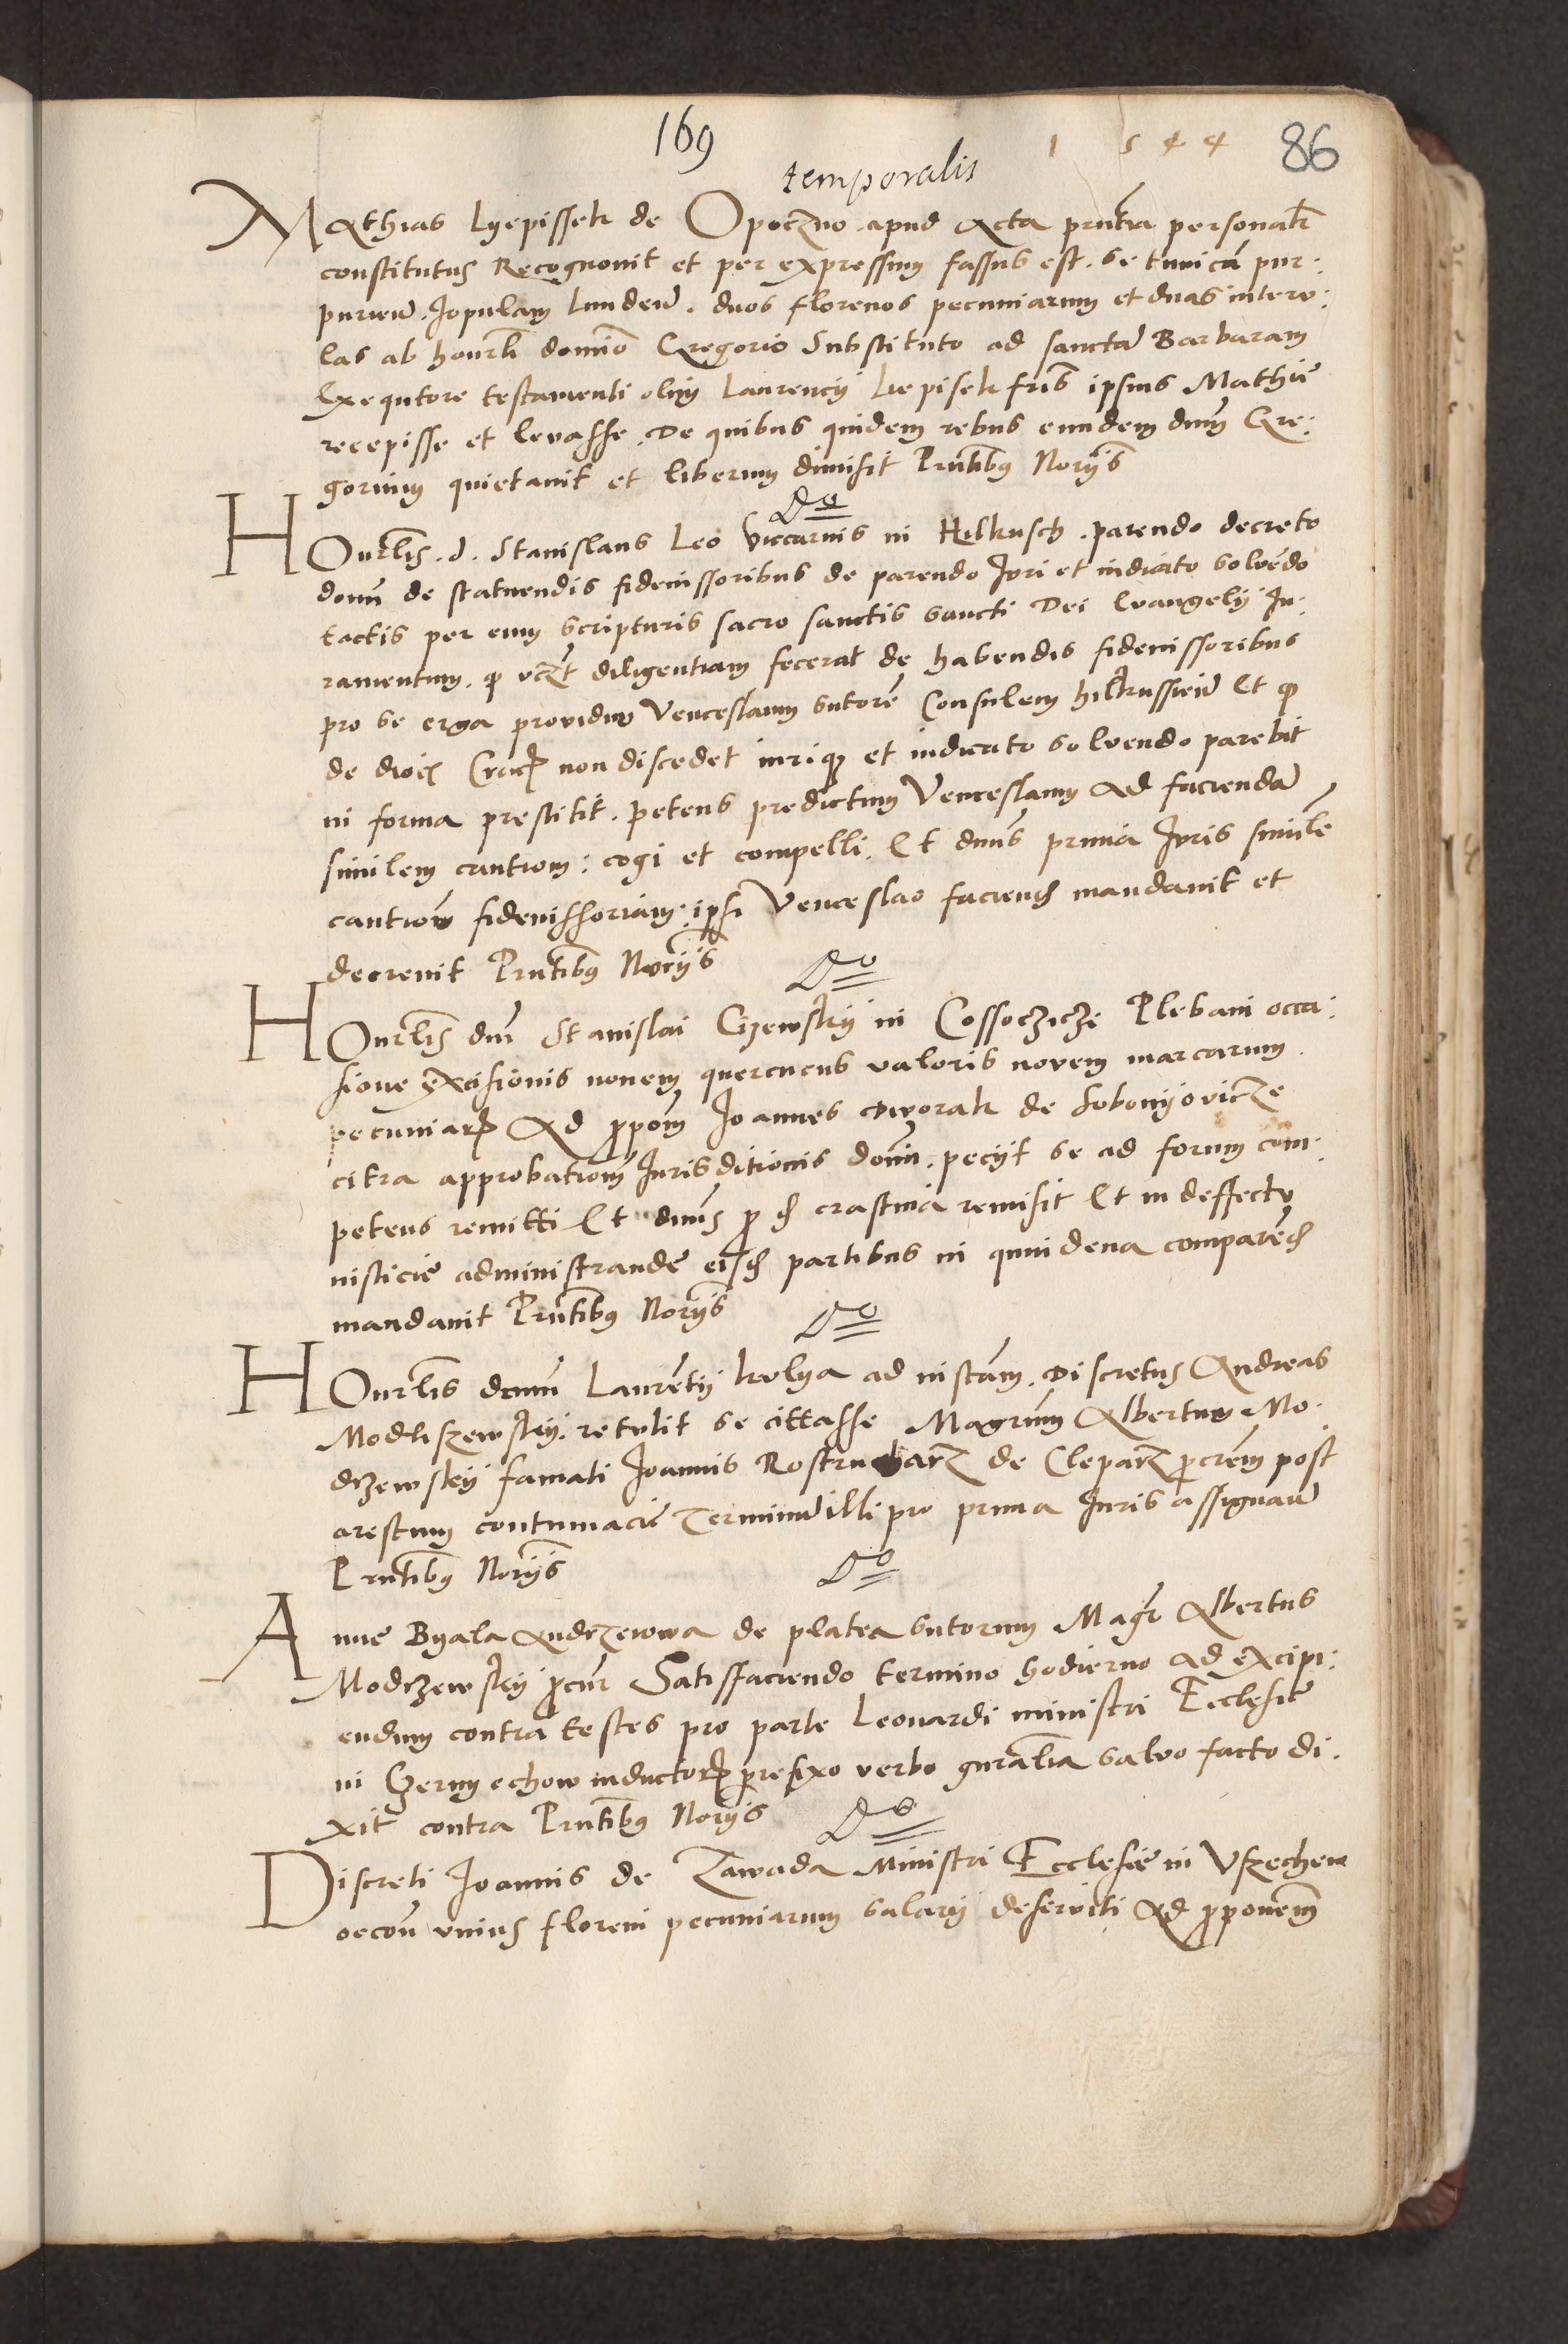 169
1 5 4 4 86
temporalis
Mathias Lyepissek de Opoczno apud Acta prñtia personalr
constitutus Recognouit et per expressum fassus est. se tunicã pur:
puream. Jopulam lundeũ. duos florenos pecuniarum et duas interu:
las ab honrli domĩo Gregorio Substituto ad sanctã Barbaram
Exequtore testamenti olim Laurencij Liepisek fris ipsius Mathie
recepisse et levasse. De quibus quidem rebus eundem dnm Gre:
gorium quietauit et liberum dimisit Prñtibus Norijs
Do
HOnrlis. d. Stanislaus Leo viccarius in Hilkusch. parendo decreto
domĩ de statuendis fideiussoribus de parendo Juri et iudicato soluẽdo
tactis per eum scripturis sacro sanctis sancti Dei Evangelij Ju:
ramentum. q vẽzt diligentiam fecerat de habendis fideiussoribus
pro se erga providum Venceslaum sutorẽ Consulem hilkussieñ Et q
de dioc Crac non discedet iuriq et iudicato soluendo parebit
in forma prestitit. petens predictum Venceslaum ad faciendã
similem cautiom: cogi et compelli. Et dnus prima Juris similẽ
cautiom fideiussoriam. ipsi Venceslao faciend mandauit et
decreuit Prñtibus Norijs Do
HOnrlis dni Stanislai Czewskij in Cossoczicze Plebani occa:
sione excisionis nouem quercuus valoris novem marcarum
pecuniar Ad ppom Joannes Dworak de Sobonyovicze
citra approbatiom Jurisditionis domĩ. pecijt se ad forum com:
petens remitti Et dnus p d crastina remisit Et in deffectu
iusticie administrande eisd partibus in quindena comparẽd
mandauit Prñtibus Norijs Do
HOnrlis domĩ Laurẽtij kulya ad instãm. Discretus Andreas
Modliszewskij. retulit se cittasse Magrum Albertum Mo:
drzewskij famati Joannis Rostrucharz de Cleparz pcrem post
arestum contumacie Terminũ illi pro prima Juris assignauit
Prñtibus Norijs Do
Anne Byala Andrzeiowa de platea sutorum Magr Albertus
Modrzewskij pcur Satisfaciendo termino hodierno ad excipi:
endum contra testes pro parte Leonardi ministri Ecclesie
in Czernyechow inductor prefixo verbo gnralia salvo facto di:
xit contra Prñtibus Norijs Do
Discreti Joannis de Zawada Ministri Ecclesie in Vszechew
occom unius floreni pecuniarum salarij deserviti Ad pponem